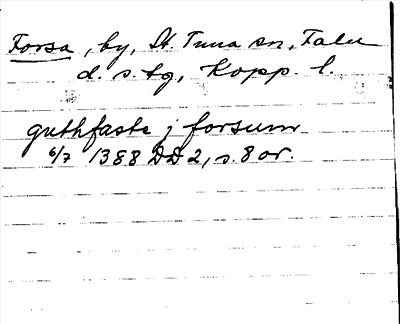 Forsa, by, St. Tuna sn, Falu
d. s. tg, Kopp. l.
guthfaste j forsum
6/7 1388 DD 2, s. 8 or.